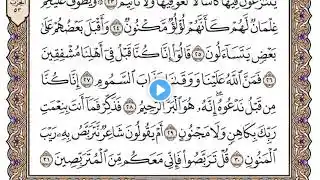 يَتَنَٰزَعُونَ فِيهَا كَأْسًا لَّا لَغْوٌ فِيهَا وَلَا تَأْثِيمٌ ٢٣ وَيَطُوفُ عَلَيْهِمْ
غِلْمَانٌ لَّهُمْ كَأَنَّهُمْ لُؤْلُؤٌ مَّكْنُونٌ ٢٤ وَأَقْبَلَ بَعْضُهُمْ عَلَىٰ
بَعْضٍ يَتَسَآءَلُونَ ٢٥ قَالُوٓا۟ إِنَّا كُنَّا قَبْلُ فِىٓ أَهْلِنَا مُشْفِقِينَ
٢٦ فَمَنَّ ٱللَّهُ عَلَيْنَا وَوَقَىٰنَا عَذَابَ ٱلسَّمُومِ ٢٧ إِنَّا كُنَّا
مِن قَبْلُ نَدْعُوهُ إِنَّهُۥ هُوَ ٱلْبَرُّ ٱلرَّحِيمُ ٢٨ فَذَكِّرْ فَمَآ أَنتَ بِنِعْمَتِ
رَبِّكَ بِكَاهِنٍ وَلَا مَجْنُونٍ ٢٩ أَمْ يَقُولُونَ شَاعِرٌ نَّتَرَبَّصُ بِهِۦ رَيْبَ
ٱلْمَنُونِ ٣٠ قُلْ تَرَبَّصُوا۟ فَإِنِّى مَعَكُم مِّنَ ٱلْمُتَرَبِّصِينَ ٣١